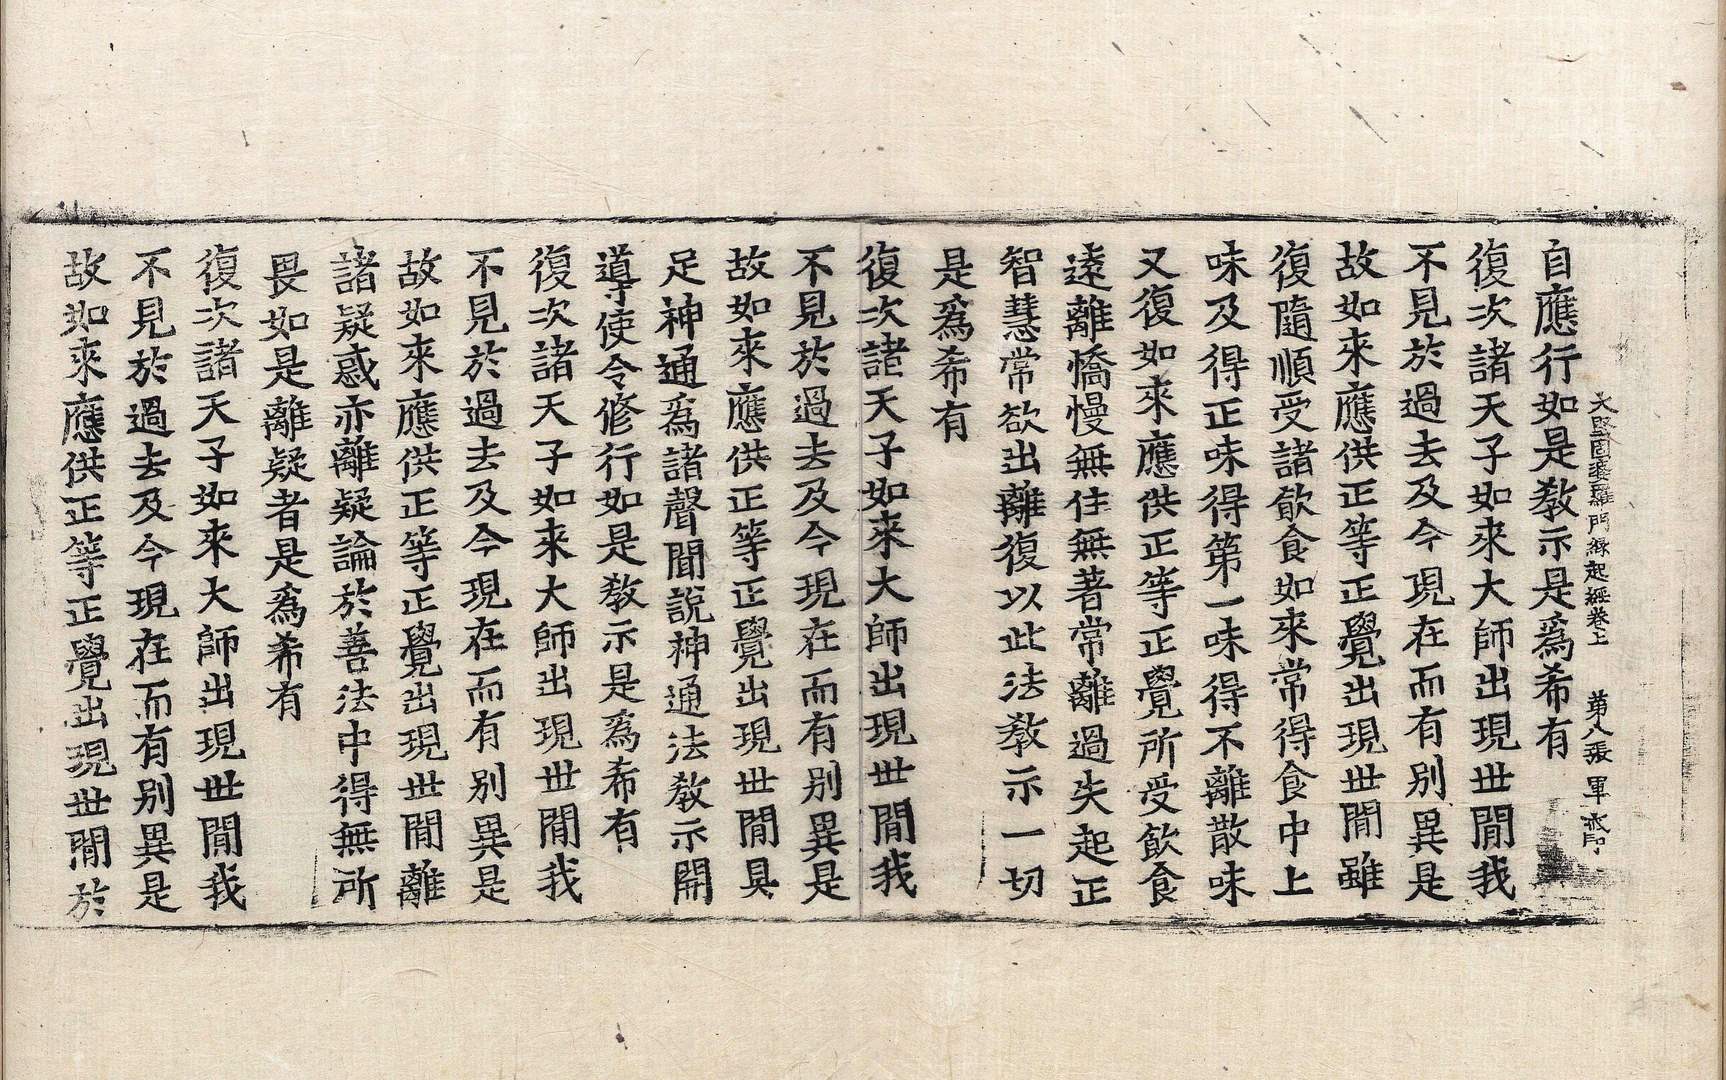 大堅固婆羅門緣起經卷上　第八張　軍
自應行如是教示是爲希有
復次諸天子如來大師出現世閒我
不見於過去及今現在而有別異是
故如來應供正等正覺出現世閒雖
復隨順受諸飮食如來常得食中上
味及得正味得第一味得不離散味
又復如來應供正等正覺所受飮食
遠離憍慢無住無著常離過失起正
智慧常欲出離復以此法教示一切
是爲希有
復次諸天子如來大師出現世閒我
不見於過去及今現在而有別異是
故如來應供正等正覺出現世閒具
足神通爲諸聲聞說神通法教示開
導使令修行如是教示是爲希有
復次諸天子如來大師出現世閒我
不見於過去及今現在而有別異是
故如來應供正等正覺出現世閒離
諸疑惑亦離疑論於善法中得無所
畏如是離疑者是爲希有
復次諸天子如來大師出現世閒我
不見於過去及今現在而有別異是
故如來應供正等正覺出現世閒於